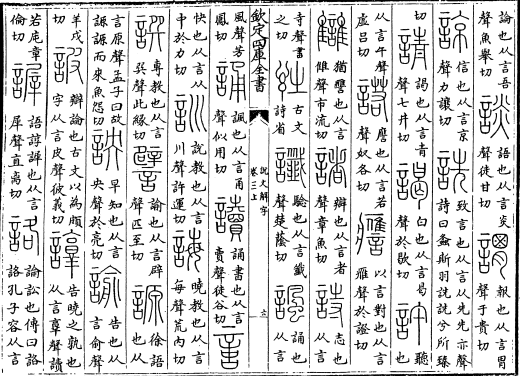 論也从言吾聲魚舉切　談　語也从言炎聲徒甘切　謂　報也从言胃聲于貴切
諒　信也从言京聲力讓切　詵　致言也从言从先先亦聲詩曰螽斯羽詵詵兮所臻
切　請　謁也从言青聲七井切　謁　白也从言曷聲於歇切　許　聽也
从言午聲虛呂切　諾　譍也从言若聲奴各切　譍　以言對也从言雁聲於證切
讎　猶譍也从言雔聲市流切　諸　辯也从言者聲章魚切　詩　志也从言
寺聲書之切　𧥳　古文詩省　讖　驗也从言韱聲楚蔭切　諷　誦也从言
欽定四庫全書　說文解字卷三上
風聲芳鳳切　誦　諷也从言甬聲似用切　讀　誦書也从言𧶠聲徒谷切　𠶷
快也从言从中於力切　訓　說教也从言川聲許運切　誨　曉教也从言每聲荒内切
譔　專教也从言巽聲此緣切　譬　諭也从言辟聲匹至切　謜　徐語也从
言原聲孟子曰故謜謜而來魚怨切　詇　早知也从言央聲於亮切　諭　告也从言俞聲
羊戍切　詖　辯論也古文以為頗字从言皮聲彼義切　諄　告曉之孰也从言𦎧聲讀
若庉章倫切　謘　語諄謘也从言犀聲直离切　詻　論訟也傳曰詻詻孔子容从言